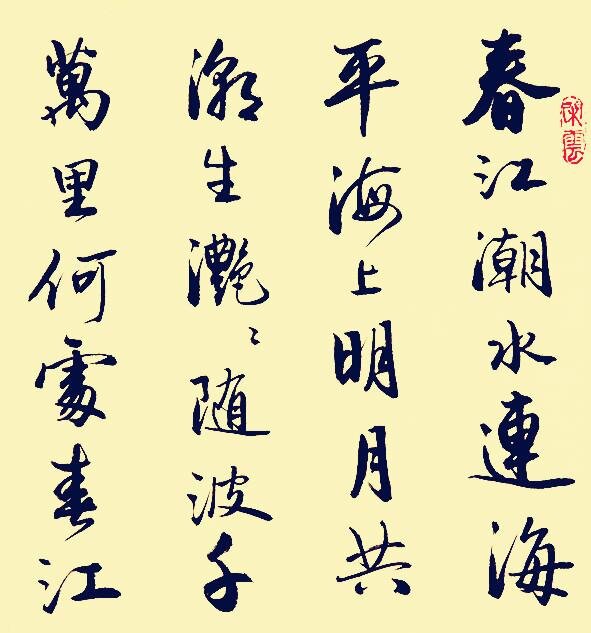 春江潮水連海
平海上明月共
潮生灧〻随波千
萬里何處春江